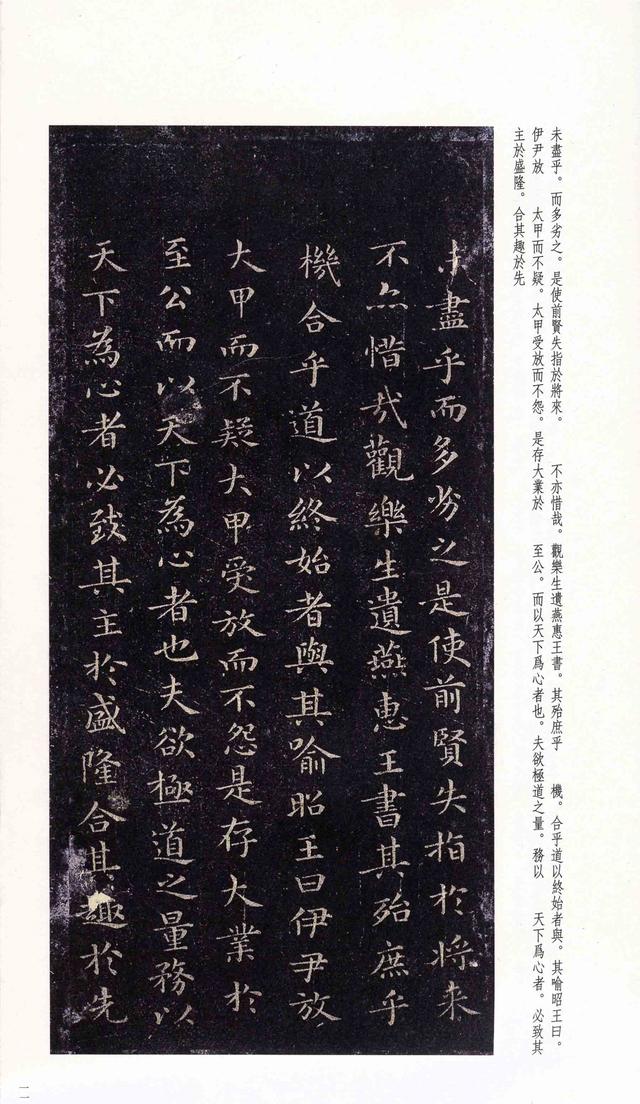 未盡乎。而多劣之。是使前賢失指於將來。　不亦惜哉。觀樂生遺燕惠王書。其殆庶乎　機。合乎道以終始者與。其喻昭王曰。
伊尹放　太甲而不疑。太甲受放而不怨。是存大業於　至公。而以天下爲心者也。夫欲極道之量。務以　天下爲心者。必致其
主於盛隆。合其趣於先
未盡乎而多劣之是使前賢失指於將来
不亦惜哉觀樂生遺燕惠王書其殆庶乎
機合乎道以終始者與其喻昭王曰伊尹放
大甲而不疑大甲受放而不怨是存大業於
至公而以天下為心者也夫欲極道之量務以
天下為心者必致其主於盛隆合其趣於先
一一